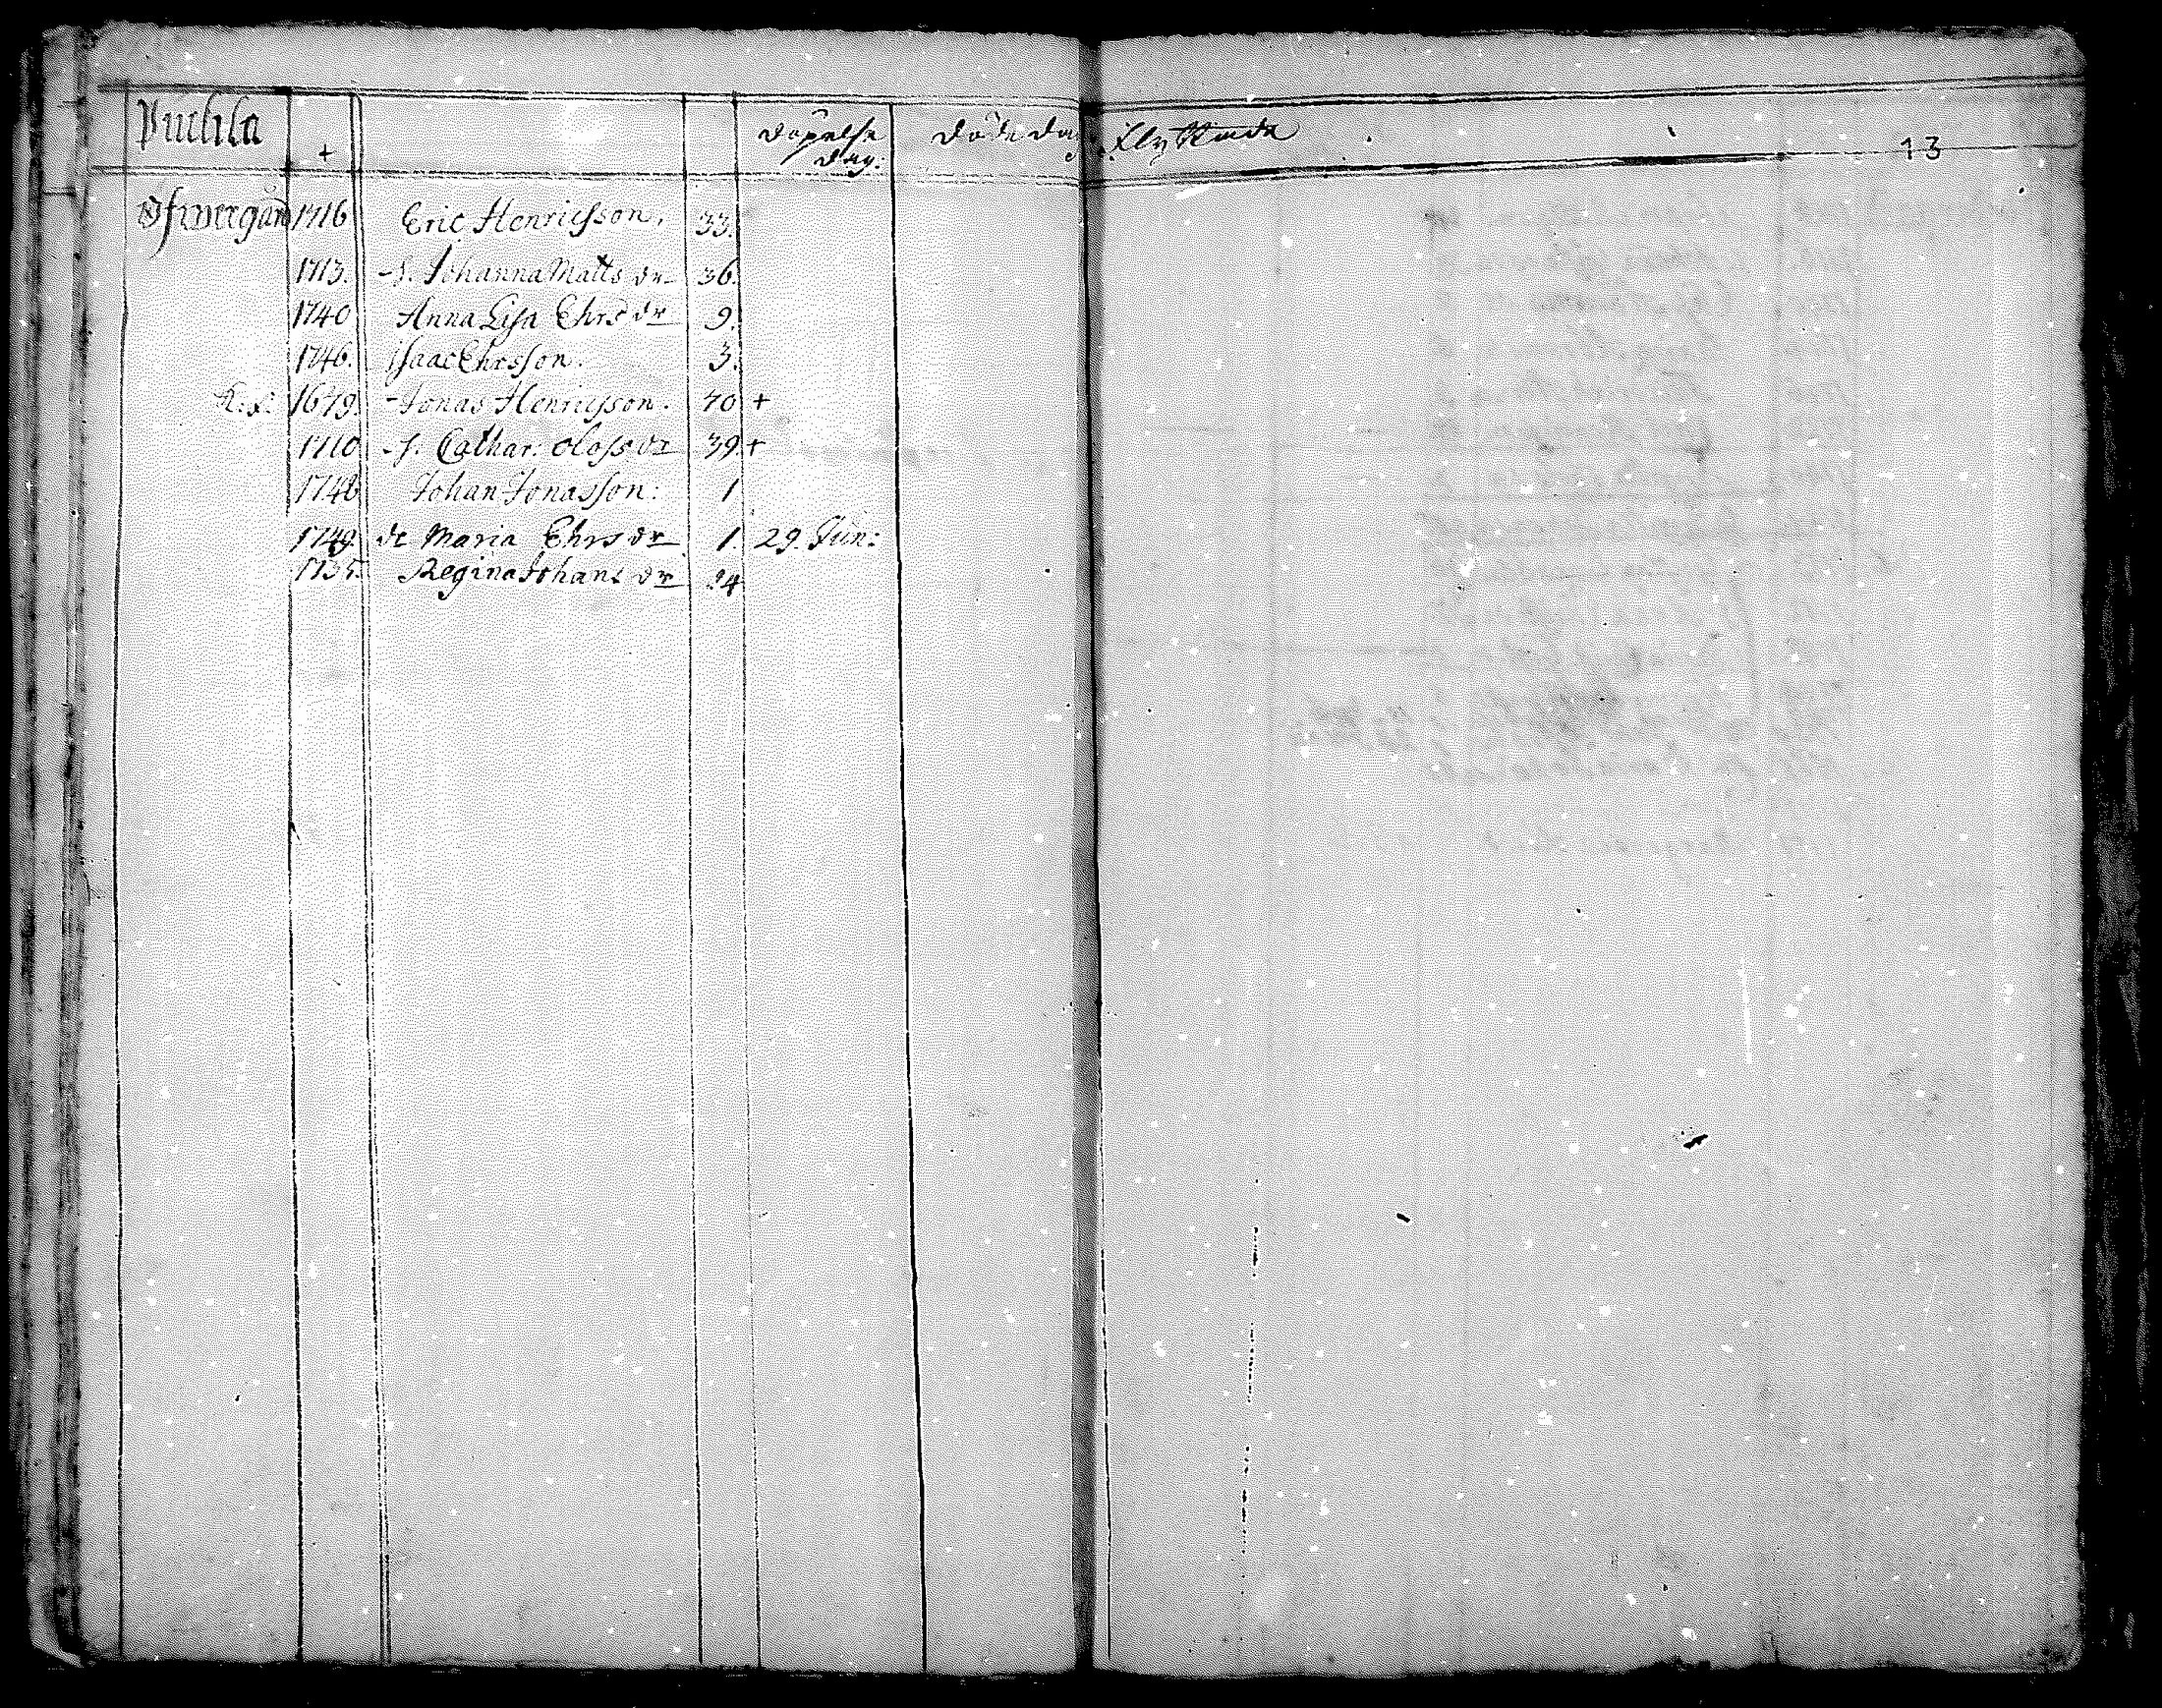 Puhila + Döpelse dag: Döde dag. Flyttande 13
Öfwergård 1716 Eric Henricsson. 33.
1713. -h. Johanna Matts dr 36.
1740 Anna Lisa Ehrs dr 9.
1746. Isaac Ehrsson. 3.
1679. -Jonas Henricsson. 70 +
1710 -h. Cathar: Olofs dr 39. +
1748 Johan Jonasson: 1
1749. dr Maria Ehrs dr 1. 29. Jun:
1735. Regina Johans dr 14